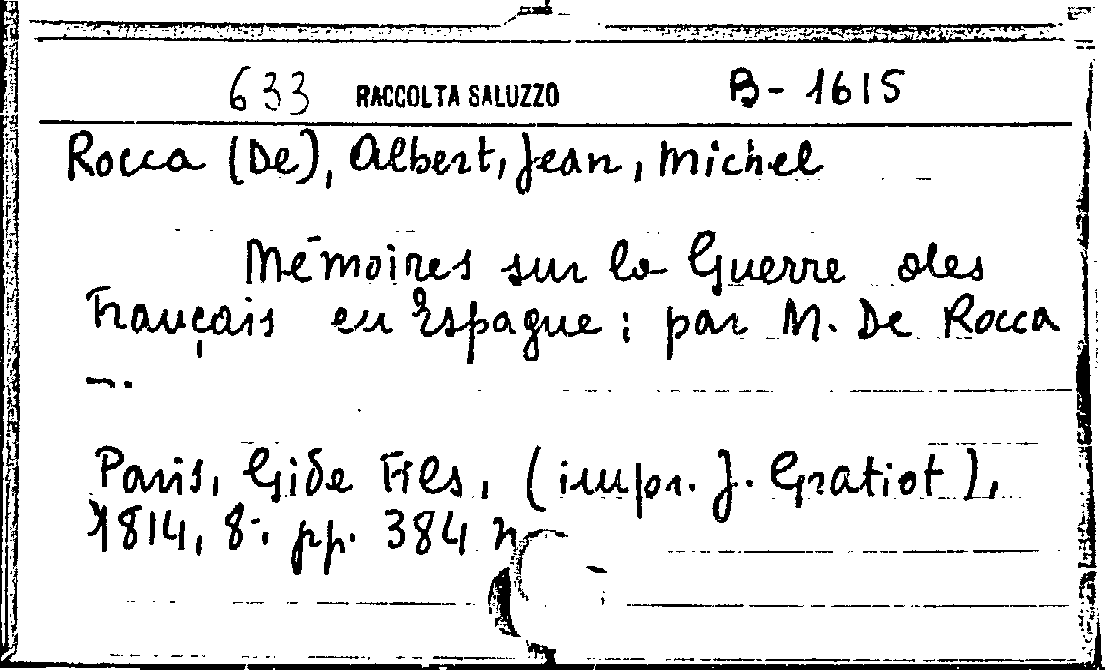 633 RACCOLTA SALUZZO B-1615
Rocca (De), Albert, Jean, Michel
Mémoires sur la Guerre des
Français en Espagne; par M. De Rocca
—.
Paris, Gide Fils, (impr. J. Gratiot),
1814, 8: pp. 384 n